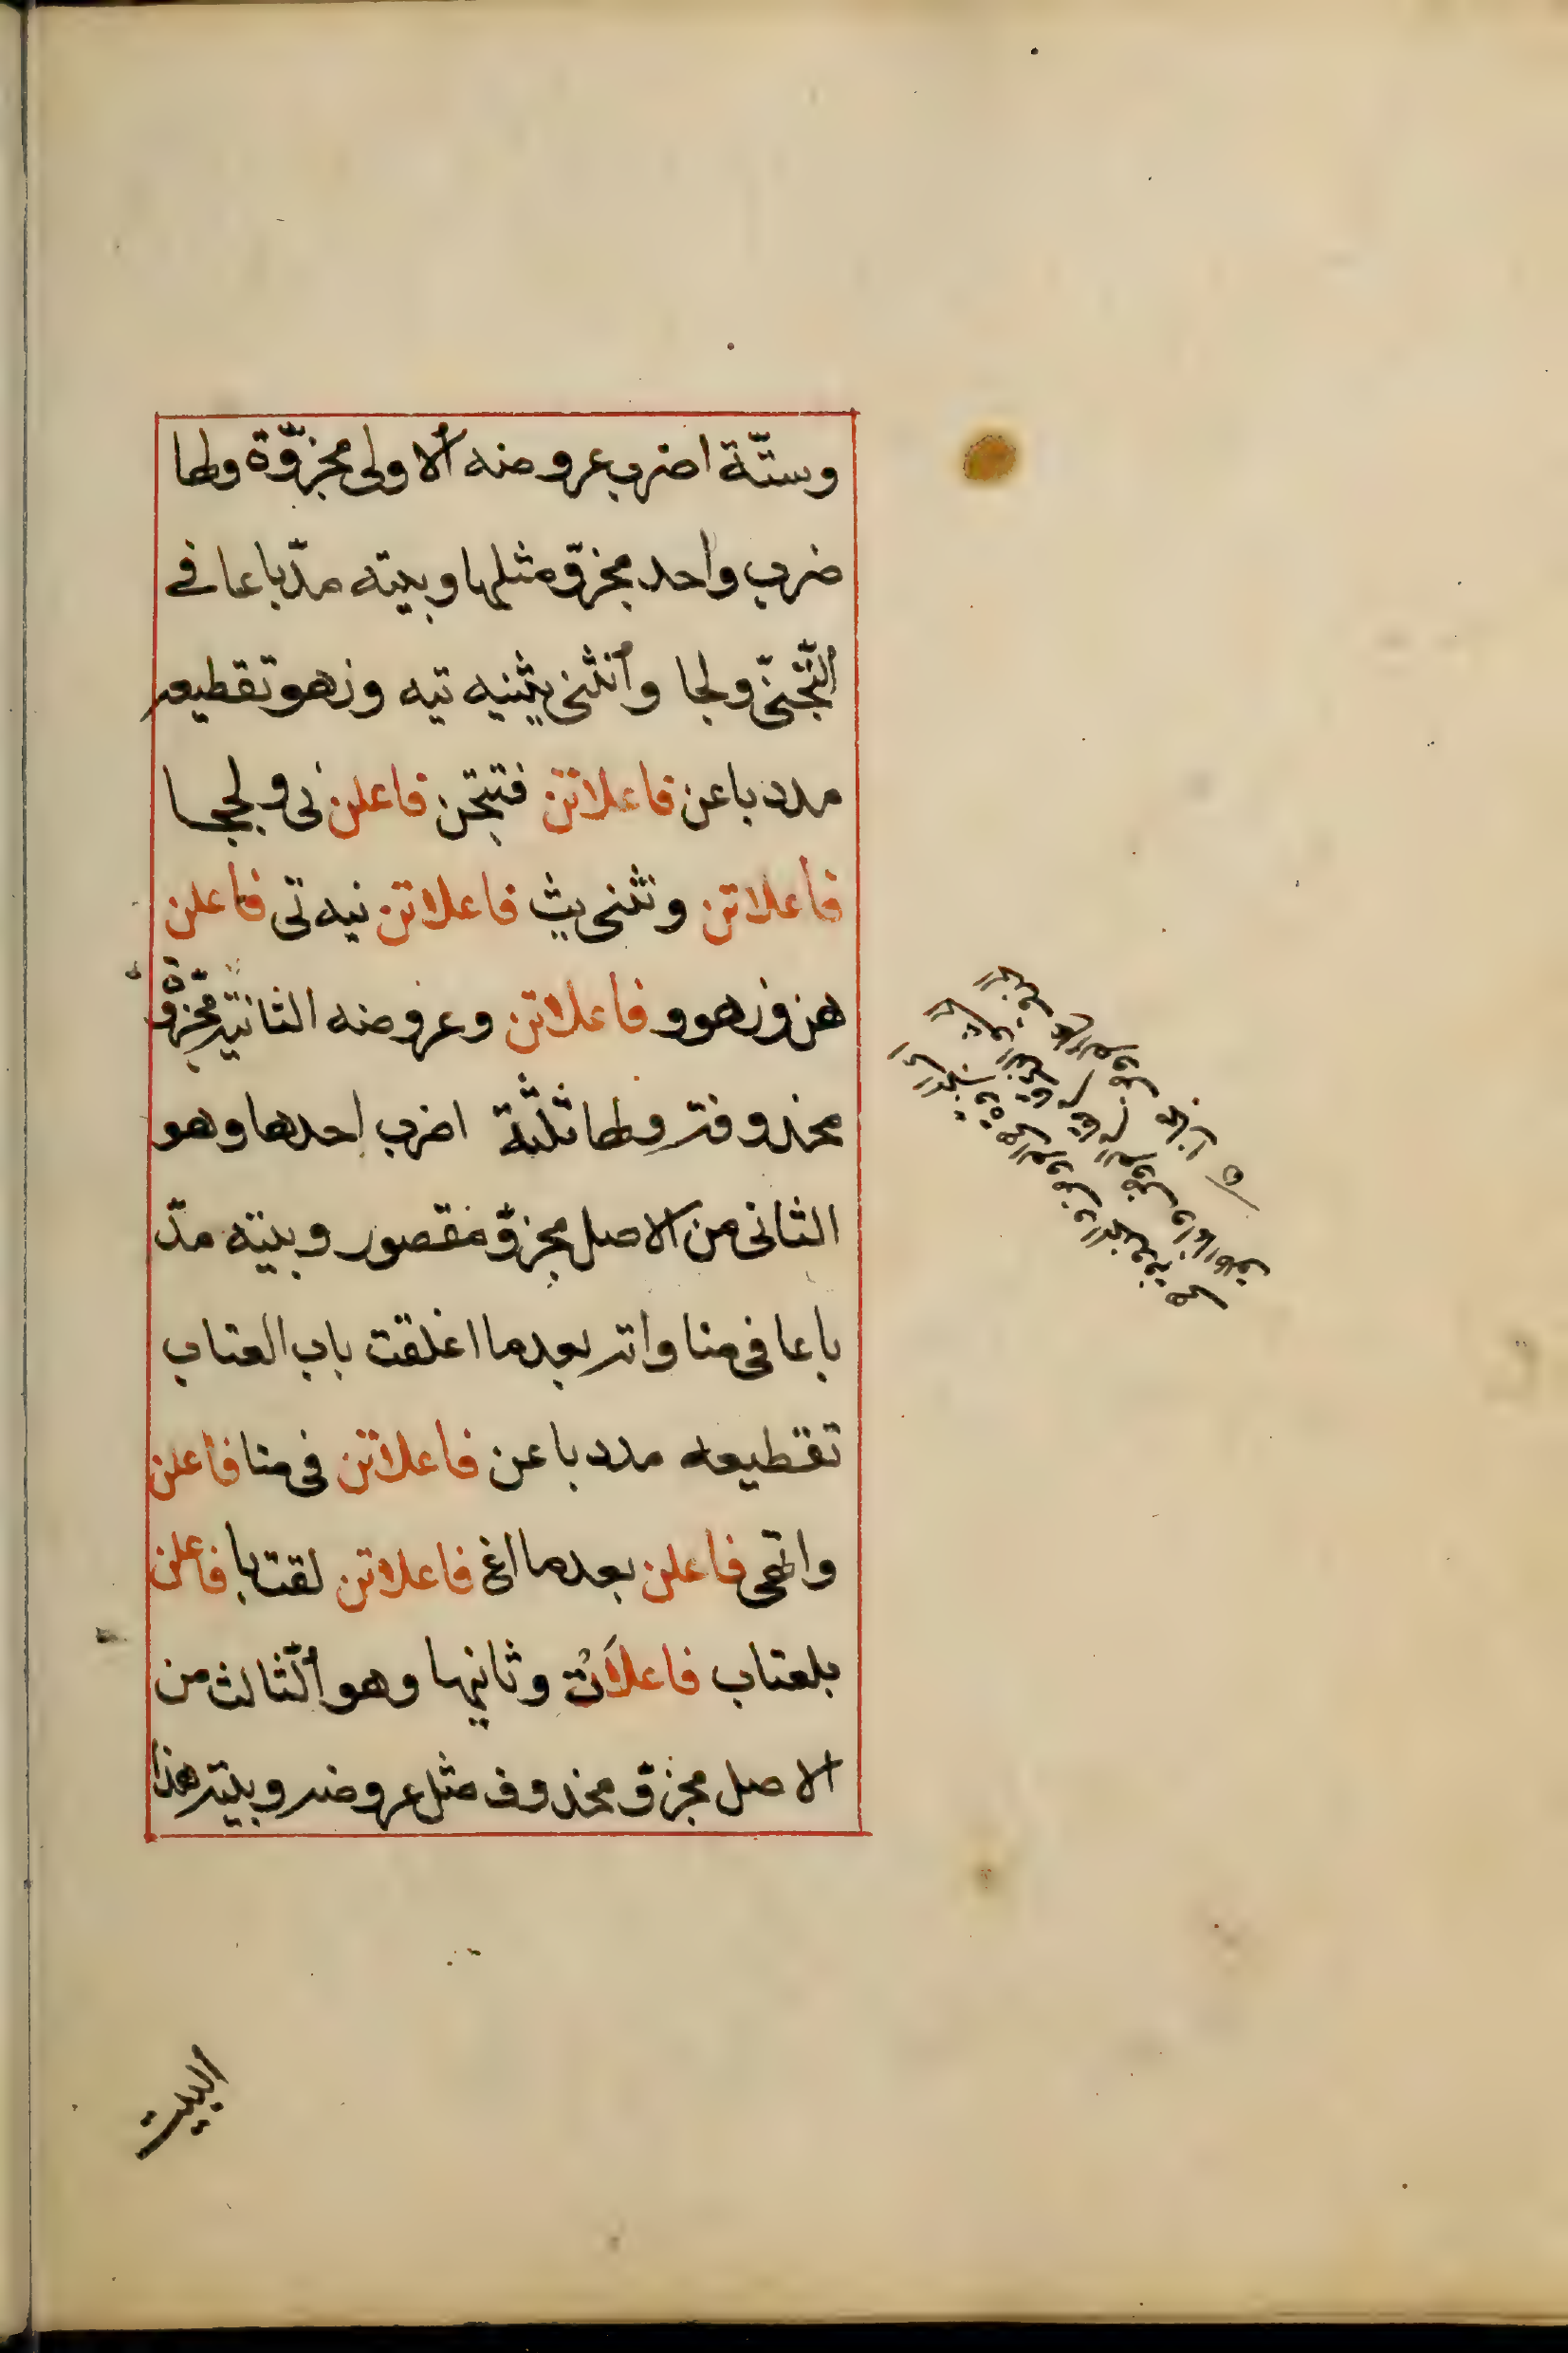 وستّة اضرب عروضه الاولى مجزوّة ولها
ضرب واحد مجزوّ مثلها وبيته مدّ باعا فے
التّجنّى ولجا وانثنى يثنيه تيه وزهو تقطيعه
مدد باعن فاعلاتن فتتجن فاعلن نى ولججا
فاعلاتن ونثنى يث فاعلاتن نيه تى فاعلن
هن وزهوو فاعلاتن وعروضه الثانية مجزوّة
محذوفة ولها ثلثة اضرب احدها وهو
الثانى من الاصل مجزوّ مقصور وبيته مدّ
باعا فى منا واته بعدما اغلقت باب العتاب
تقطيعه مدد باعن فاعلاتن فى منا فاعلن
واتهى فاعلن بعدما اغ فاعلاتن لقت با فاعلن
بلعتاب فاعلاتْ وثانيها وهو الّثالث من
الاصل مجزوّ محذوف مثل عروضه وبيته هذا
البيت